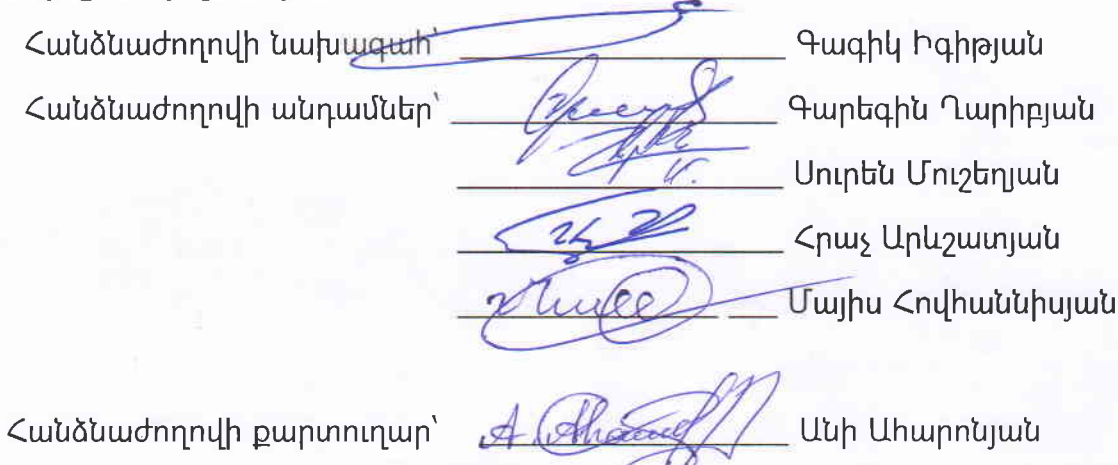 Հանձնաժողովի նախագահ՝ Գագիկ Իգիթյան
Հանձնաժողովի անդամներ՝ Գարեգին Ղարիբյան
Սուրեն Մուշեղյան
Հրաչ Արևշատյան
Մայիս Հովհաննիսյան
Հանձնաժողովի քարտուղար՝ Անի Ահարոնյան